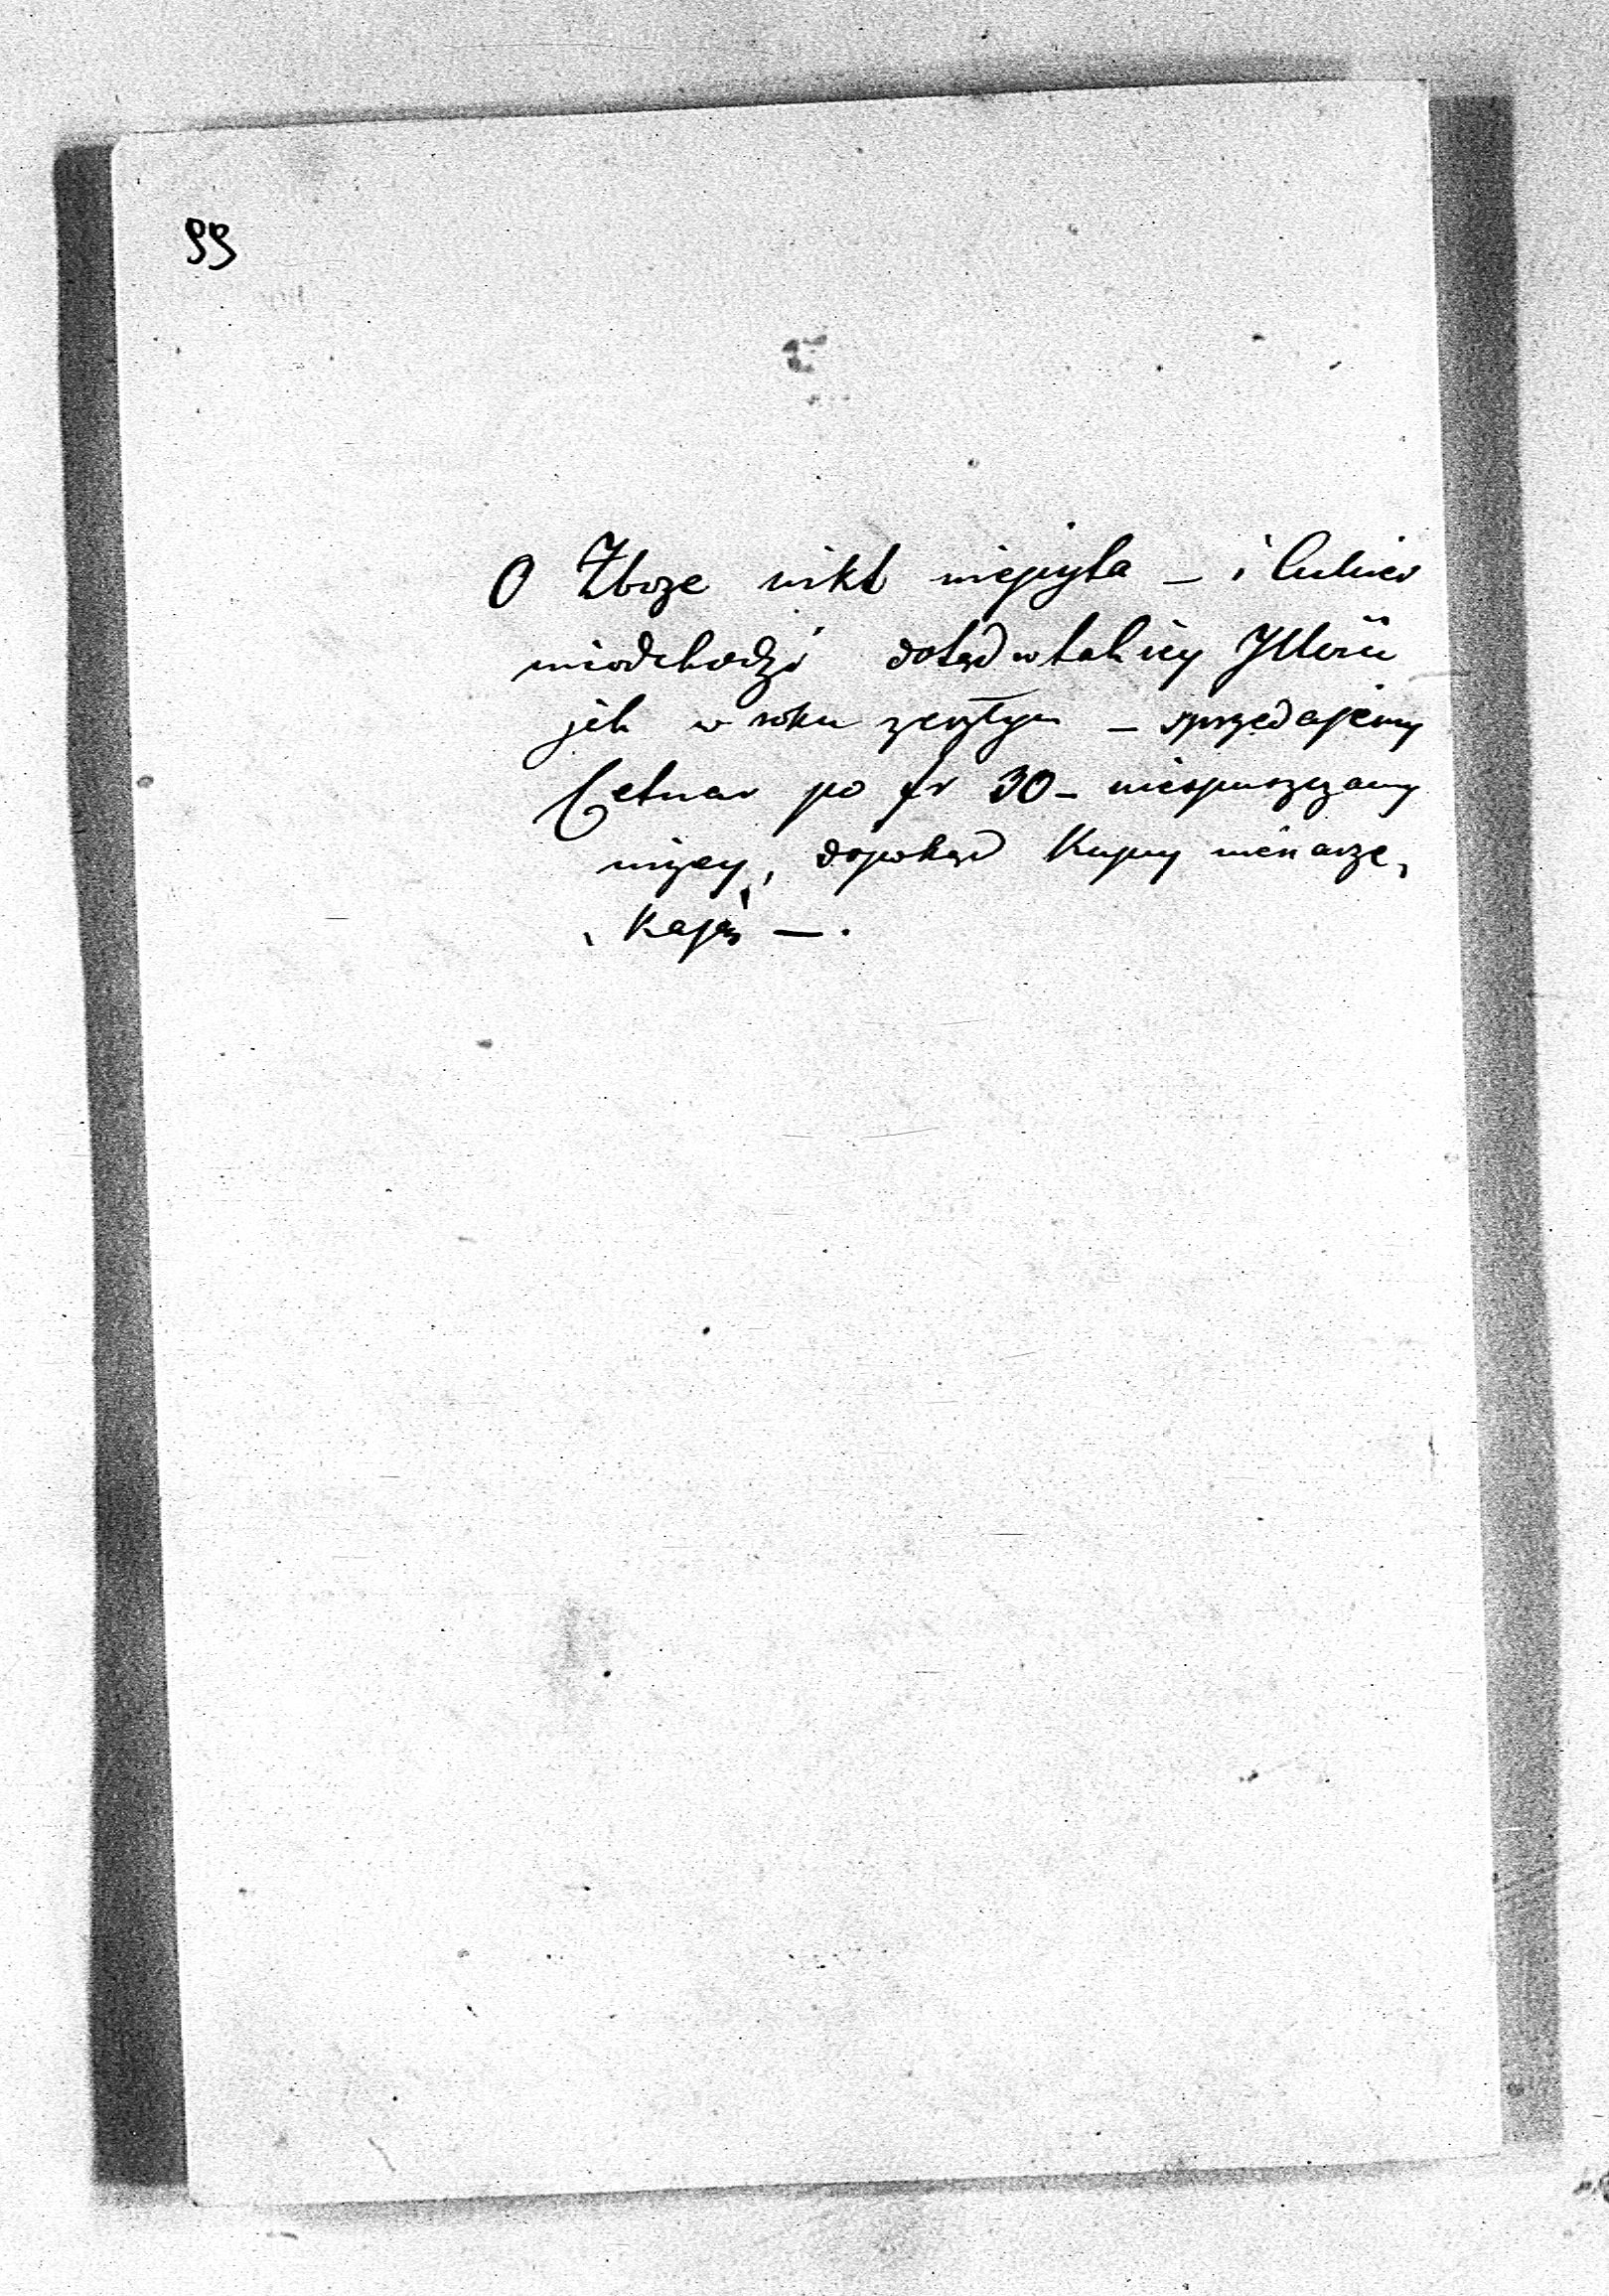 99
O Zboże nikt niepyta – i Cukier
nieodchodzi dotąd w takiey Illości
jak w roku zeszłym – sprzedajemy
Cetnar po fr 30 – niespuszczamy
niżey, dopokąd Kupcy nienarze,
, kają – .